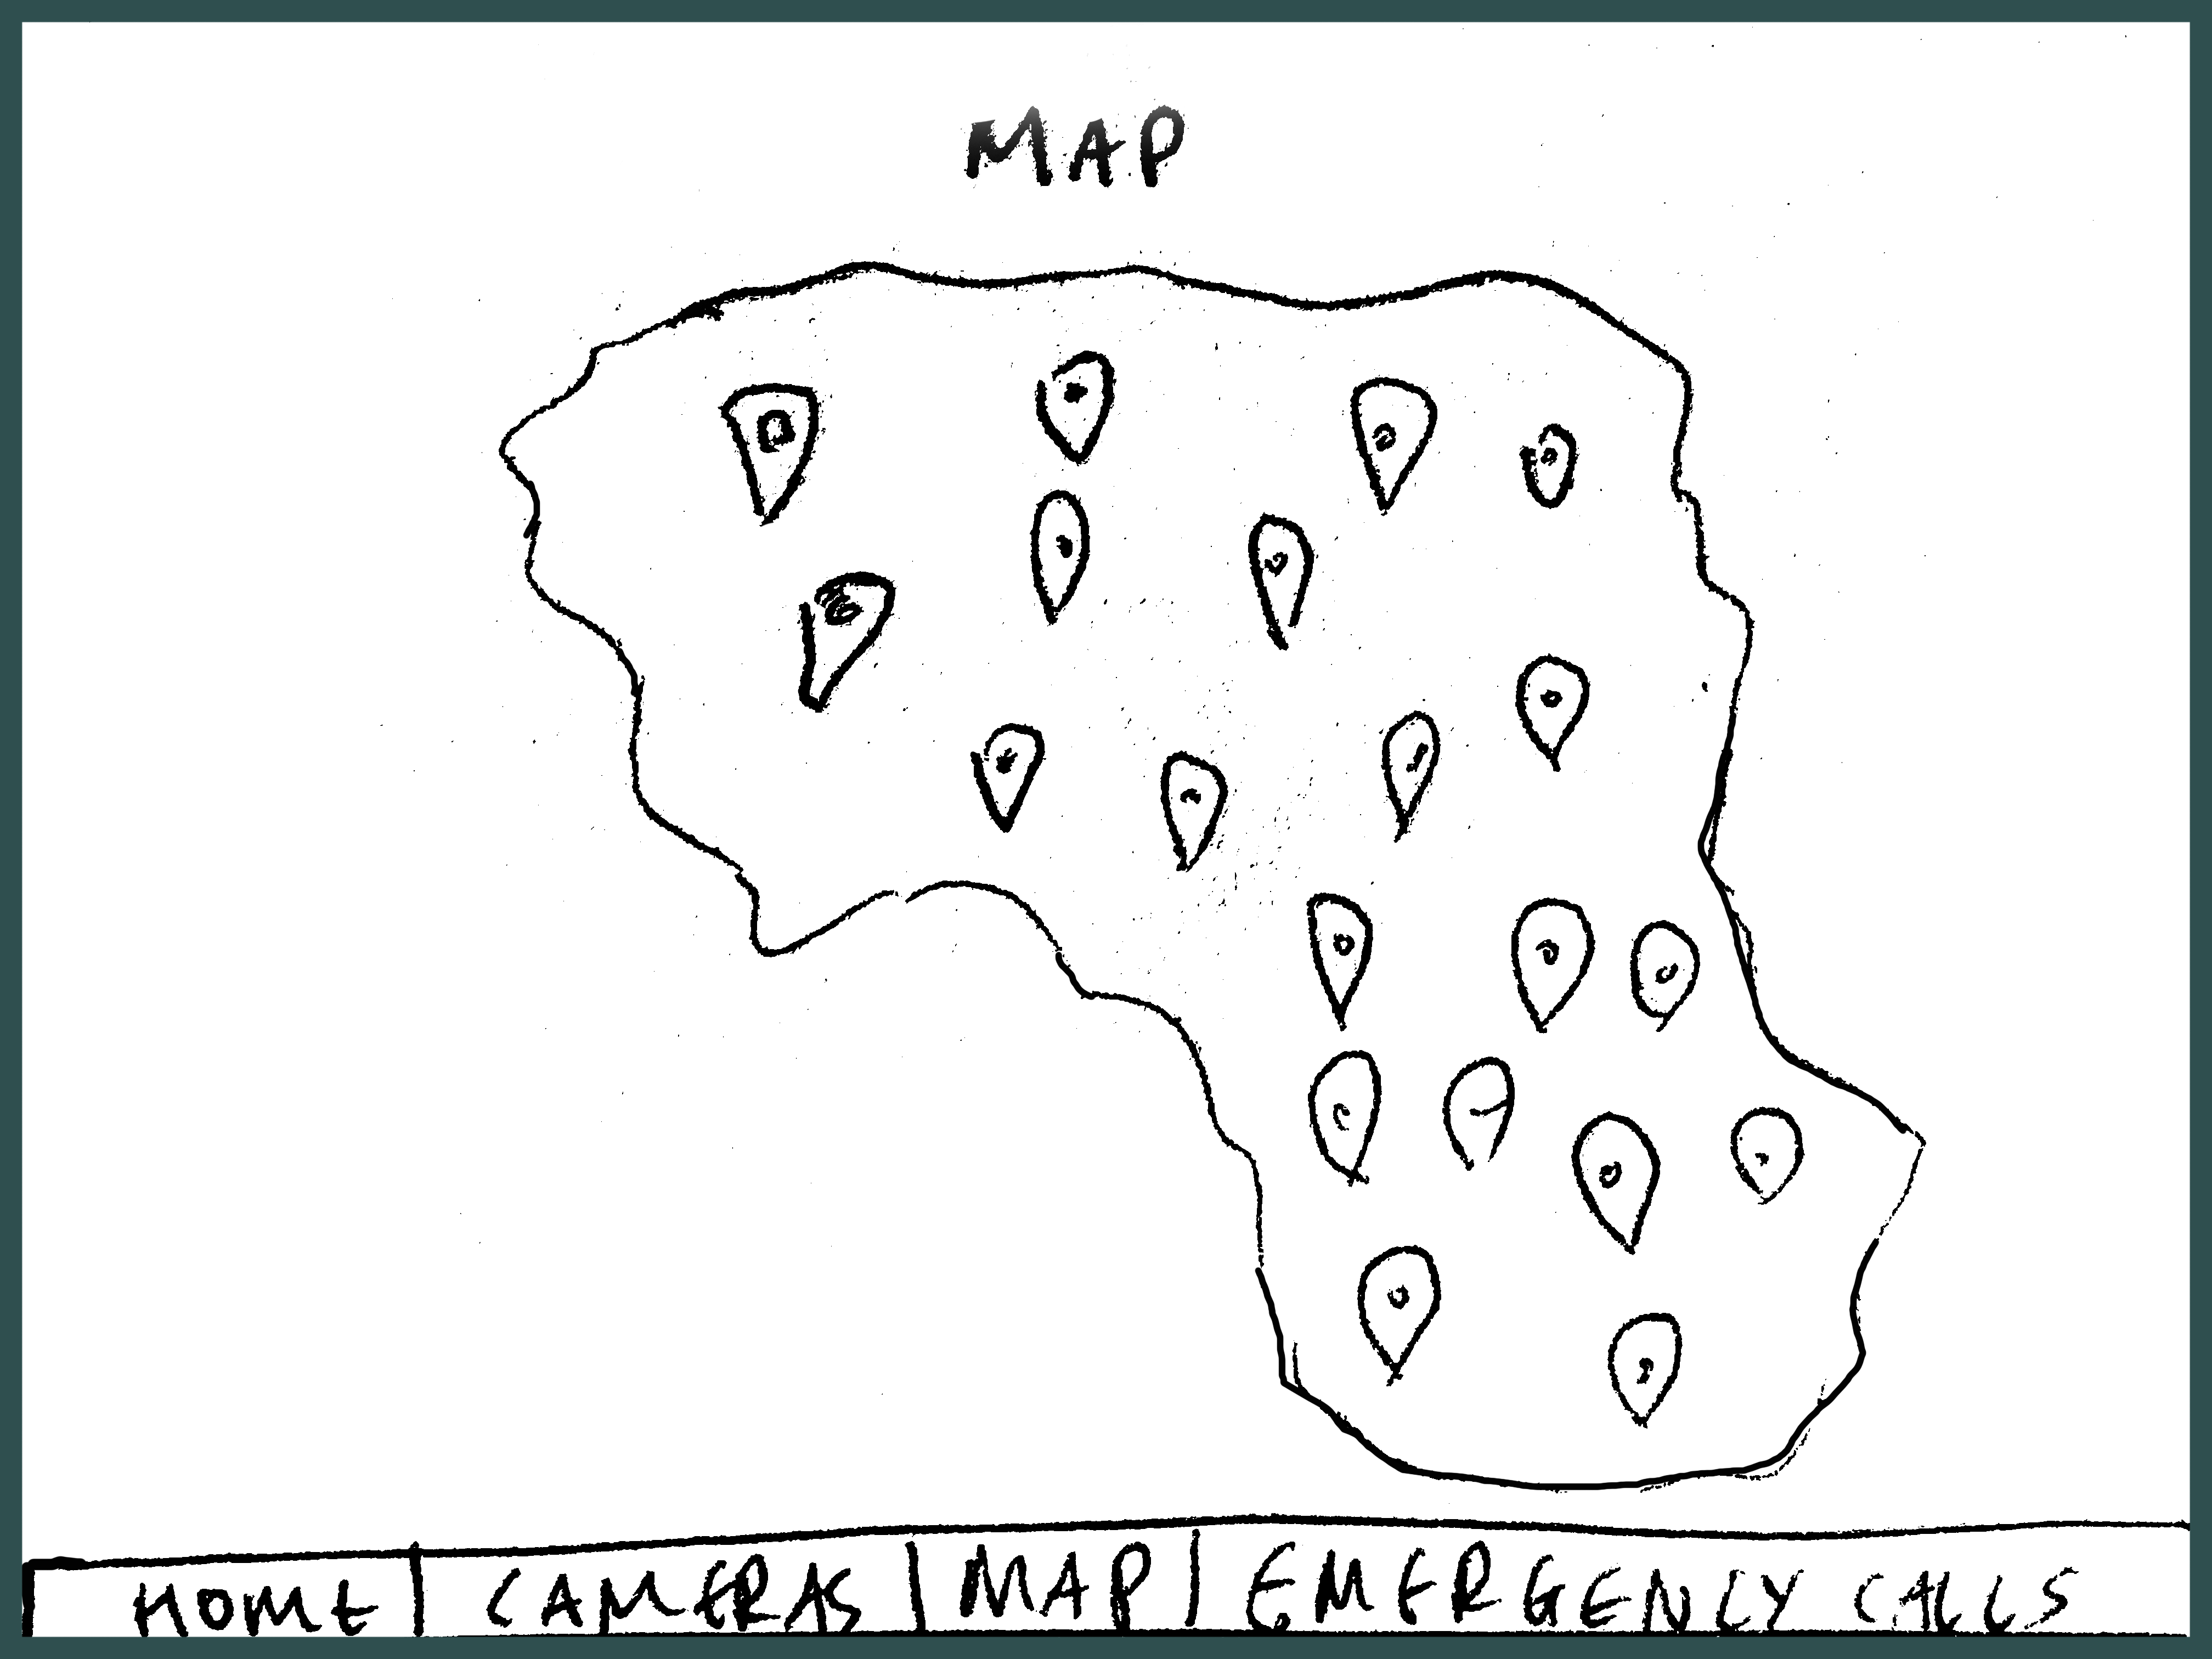 MAP
HOME CAMERAS MAP EMERGENCY CALLS